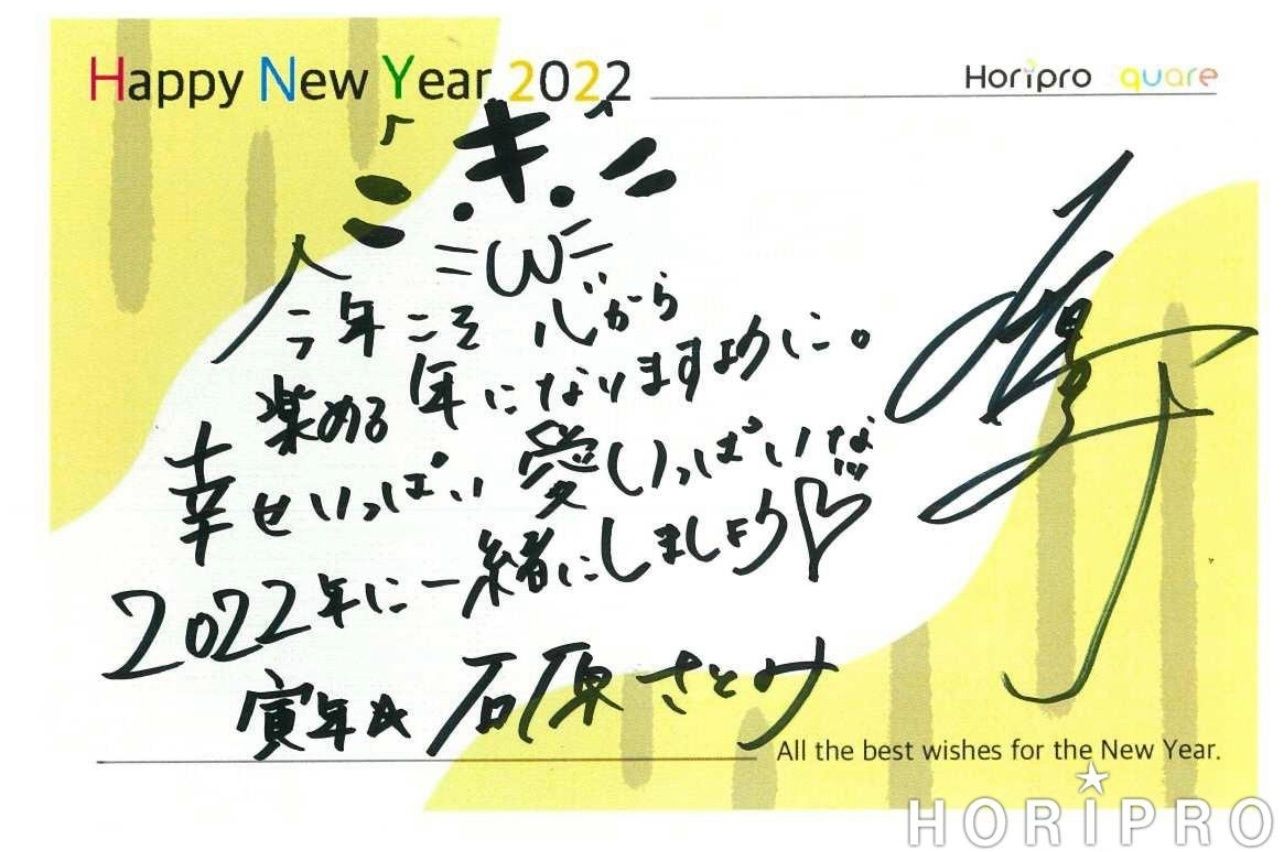 Happy New Year 2022
Horipro Square
今年こそ心から
楽める年になりますように。
幸せいっぱい愛いっぱいな
2022年に一緒にしましょう♡
寅年☆石原さとみ
All the best wishes for the New Year.
HORIPRO